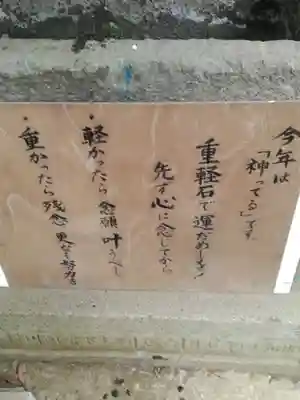 今年は
「神ってる」です。
重軽石で運だめしを!
先ず心に念じてから
・軽かったら念願叶うべし
・重かったら残念更なる努力を